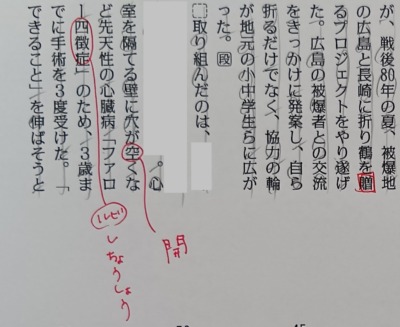 が、戦後80年の夏、被爆地
の広島と長崎に折り鶴を贈
るプロジェクトをやり遂げ
た。広島の被爆者との交流
をきっかけに発案し、自ら
折るだけでなく、協力の輪
が地元の小中学生らに広が
った。段
取り組んだのは、
。心
室を隔てる壁に穴が空くな
ど先天性の心臓病「ファロ
ー四徴症」のため、3歳ま
でに手術を3度受けた。「
できること」を伸ばそうと
開
ルビ
しちょうしょう